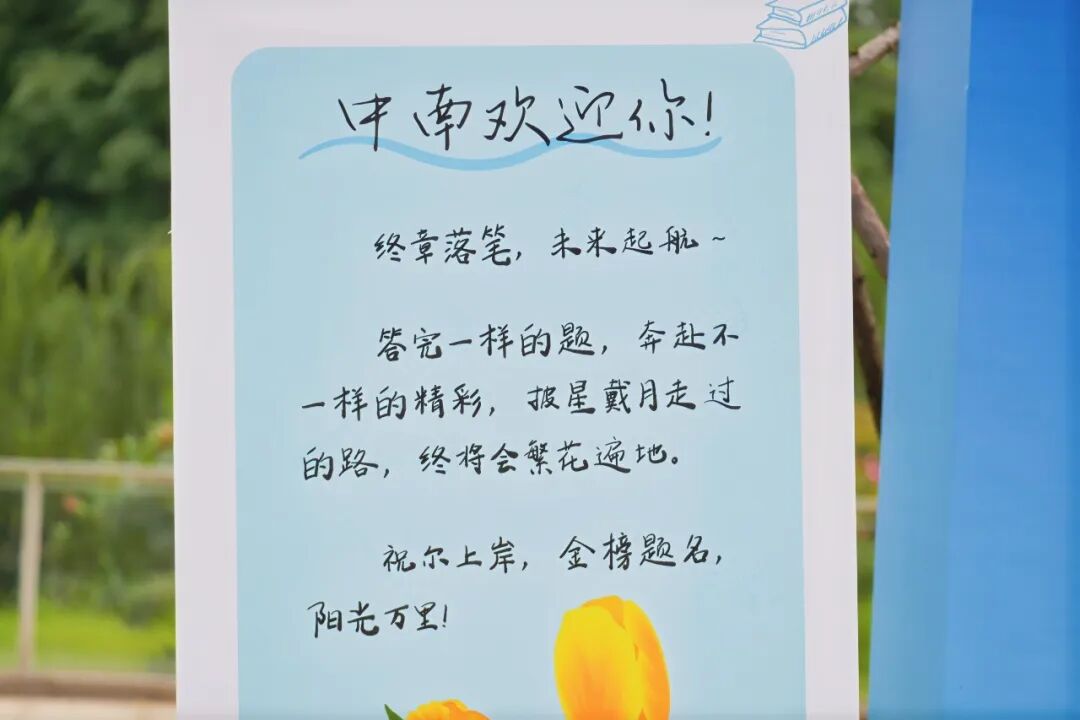 中南欢迎你!
终章落笔，未来起航~
答完一样的题，奔赴不
一样的精彩，披星戴月走过
的路，终将会繁花遍地。
祝尔上岸，金榜题名，
阳光万里!